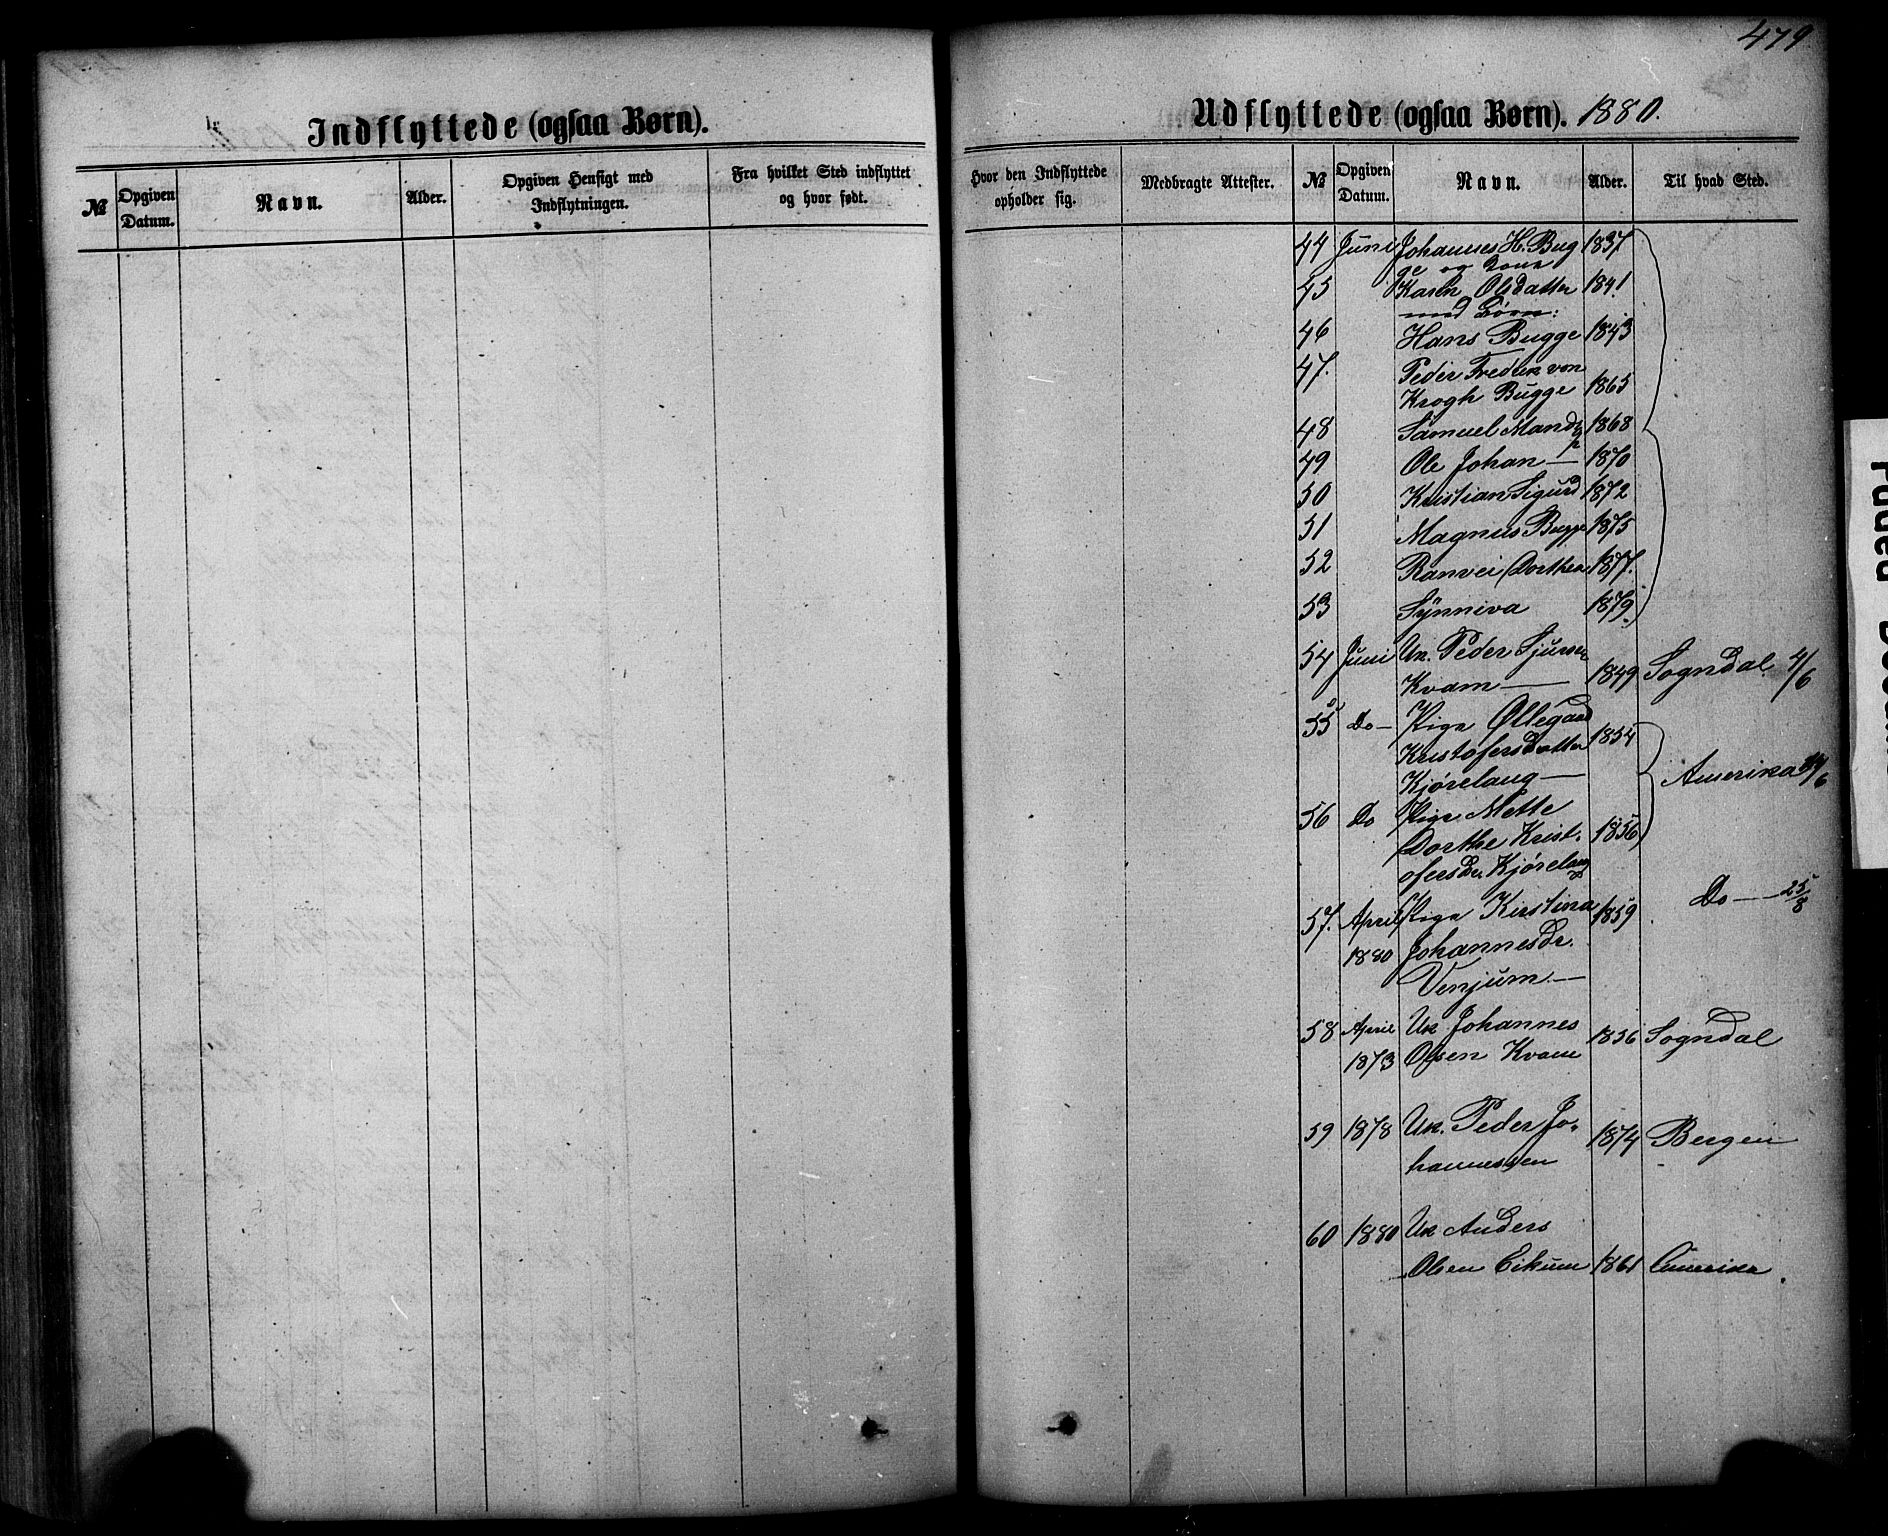 479
Indflyttede (ogsaa Børn).
№
Opgiven Datum.
Navn.
Alder.
Opgiven Hensigt med Indflytningen.
Fra hvilket Sted indflyttet og hvor født.
Udflyttede (ogsaa Børn). 1880.
Hvor den Indflyttede opholder sig.
Medbragte Attester.
№
Opgiven Datum.
Navn.
Alder.
Til hvad Sted.
44 Juni Johannes H. Bug 1837
ge og Kone
45 Karen Olsdatter 1841
med Børn:
46 Hans Bugge 1843
47. Peder Fredrik von
Krogh Bugge 1865
48 Samuel 1868
49 Ole Johan — 1870
50 Kristian Sigurd 1872
51 Magnus Bugge 1875
52 Ranvei Dorthea 1877.
53 Synniva 1879.
54 Juni Uk. Peder Sjursen
Kvam — 1849 Sogndal 4/6
55 Do — Pige Øllegaard 1854
Kristofersdatter
Kjørelaug — Amerika /6
56 Do Pige Mette
Dorthe Krist- 1856
ofersdr. Kjørelaug
57. April Pige Kirstina 1859 Do — 25/8
1880 Johannesdr.
Venjum. —
58 April Uk Johannes 1856 Sogndal
1873 Olsen Kvam
59 1878 Uk. Peder Jo- 1874 Bergen
hannessen
60 1880 Uk Anders
Olsen Eikum 1861 Amerika